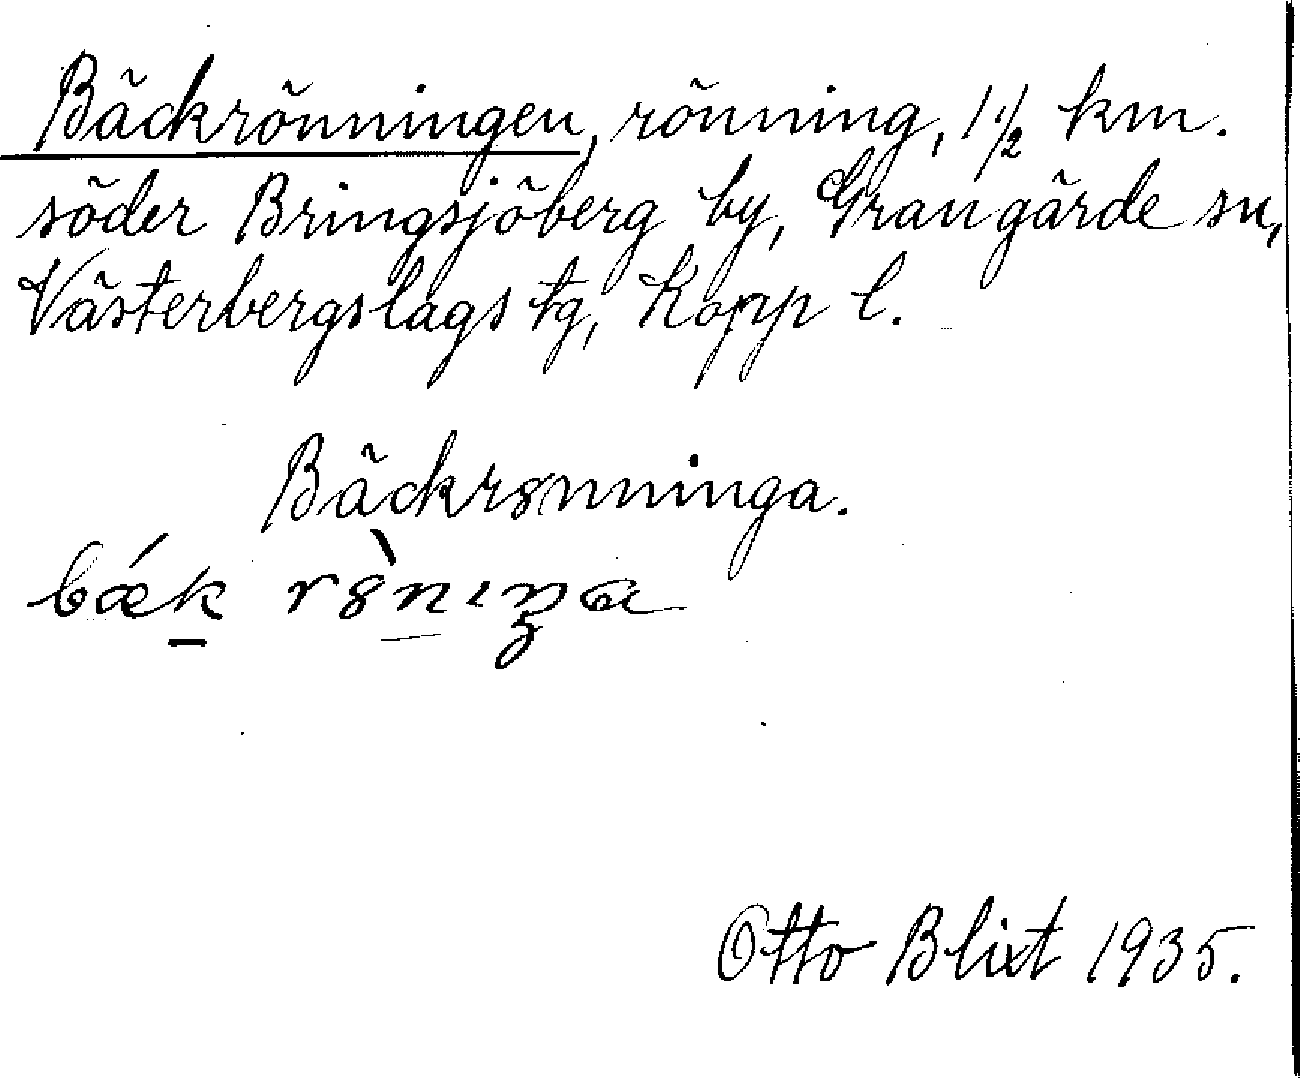 Bäckrönningen, rönning, 1 1/2 km.
söder Bringsjöberg by, Grangärde sn,
Västerbergslags tg, Kopp l.
Bäckrȣnninga.
bǽk rȣ̀nıŋa
Otto Blixt 1935.